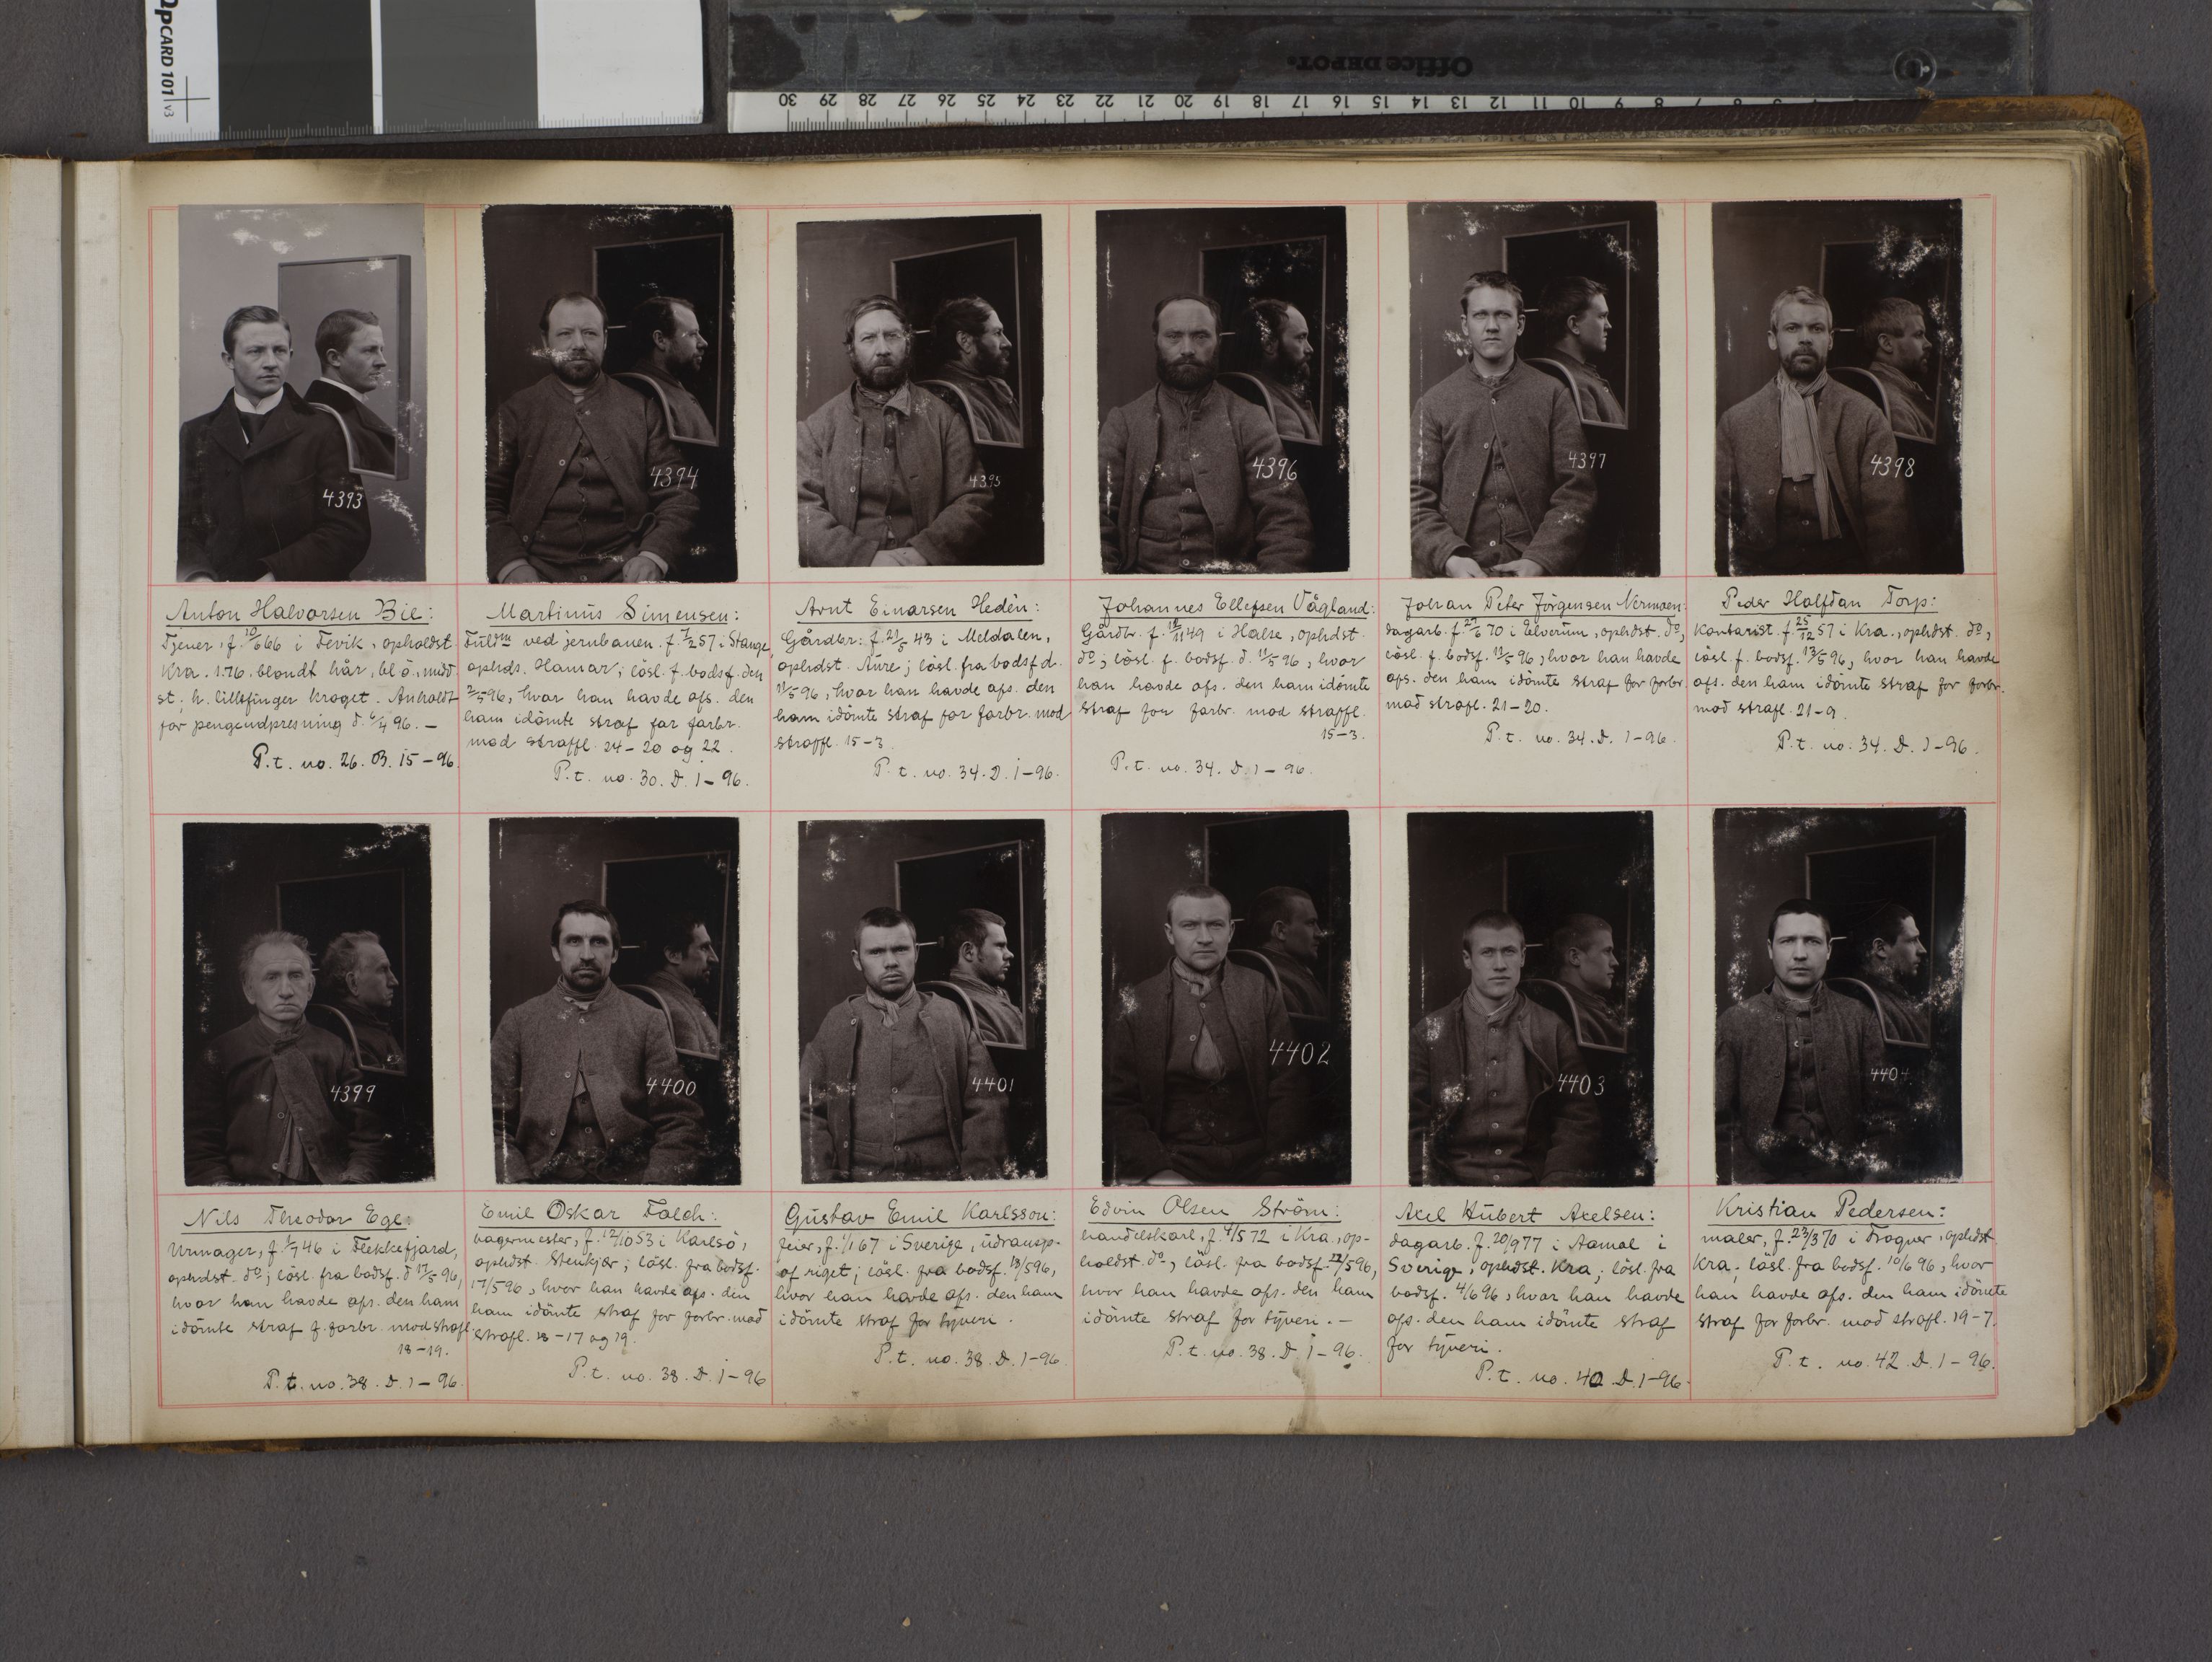 OpCARD 101 v3
Office DEPOT.
30 29 28 27 26 25 24 23 22 21 20 19 18 17 16 15 14 13 12 11 10 9 8 7 6 5
4393
4394
4395
4396
4397
4398
Anton Halvorsen Bie:
Tjener, f. 10/6 66 i Fevik, opholdst
Kra. 1.76, blondt hår, bl. ö., midd.
st., h. lillefinger kroget. Anholdt
for pengeudpresning d. 6/4 96. —
P.t. no. 26. B. 15 – 96.
Martinus Simensen:
Fuldm ved jernbanen. f. 7/2 57 i Stange,
ophds. Hamar; lösl. f. bodsf. den
2/5 96, hvor han havde afs. den
ham idömte straf for forbr.
mod straffl. 24 – 20 og 22.
P.t. no. 30. D. 1 – 96.
Arnt Einarsen Hedèn:
Gårdbr: f. 21/5 43 i Meldalen,
ophldst. Aure; lösl. fra bodsf d.
11/5 96, hvor han havde afs. den
ham idömte straf for forbr. mod
straffl. 15 – 3.
P.t. no. 34. D. 1 – 96.
Johannes Ellefsen Vågland:
Gårdbr. f. 18/11 49 i Halse, ophdst.
do; lösl. f. bodsf. d. 11/5 96, hvor
han havde afs. den ham idömte
straf for forbr. mod straffl.
15 – 3.
P.t. no. 34. D. 1 – 96.
Johan Peter Jörgensen Nermoen:
dagarb. f. 27/6 70 i Elverum, ophdst. do,
lösl. f. bodsf. 11/5 96, hvor han havde
afs. den ham idömte straf for forbr.
mod strafl. 21 – 20.
P.t. no. 34. D. 1 – 96.
Peder Halfdan Torp:
Kontorist. f. 25/12 57 i Kra., ophdst. do,
lösl. f. bodsf. 13/5 96, hvor han havde
afs. den ham idömte straf for forbr.
mod strafl. 21 – 9.
P.t. no: 34. D. 1 – 96.
4399
4400
4401
4402
4403
4404
Nils Theodor Ege:
Urmager, f. 1/7 46 i Flekkefjord,
ophdst. do; lösl. fra bodsf. d 17/5 96,
hvor han havde afs. den ham
idömte straf f. forbr. mod strafl.
18 – 19.
P.t. no. 38. D. 1 – 96.
Emil Oskar Falch:
bagermester, f. 12/10 53 i Karlsö,
ophdst. Stenkjær; lösl. fra bodsf.
17/5 96, hvor han havde afs. den
ham idömte straf for forbr. mod
strafl. 18 – 17 og 19.
P.t. no. 38. D. 1 – 96
Gustav Emil Karlsson:
feier, f. 1/1 67 i Sverige, udransp.
af riget; lösl. fra bodsf. 18/5 96,
hvor han havde afs. den ham
idömte straf for tyveri.
P.t. no. 38. D. 1 – 96.
Edvin Olsen Ström:
handelskarl, f. 4/5 72 i Kra., op-
holdst. do, lösl. fra bodsf. 22/5 96,
hvor han havde afs. den ham
idömte straf for tyveri. —
P.t. no. 38. D. 1 – 96.
Axel Hubert Axelsen:
dagarb. f. 20/9 77 i Aamal i
Sverige, ophdst. Kra; lösl. fra
bodsf. 4/6 96, hvor han havde
afs. den ham idömte straf
for tyveri.
P.t. no. 40. D. 1 – 96.
Kristian Pedersen:
maler, f. 23/3 70 i Frogner, ophdst.
Kra; lösl. fra bodsf. 10/6 96, hvor
han havde afs. den ham idömte
straf for forbr. mod strafl. 19 – 7.
P.t. no. 42. D. 1 – 96.